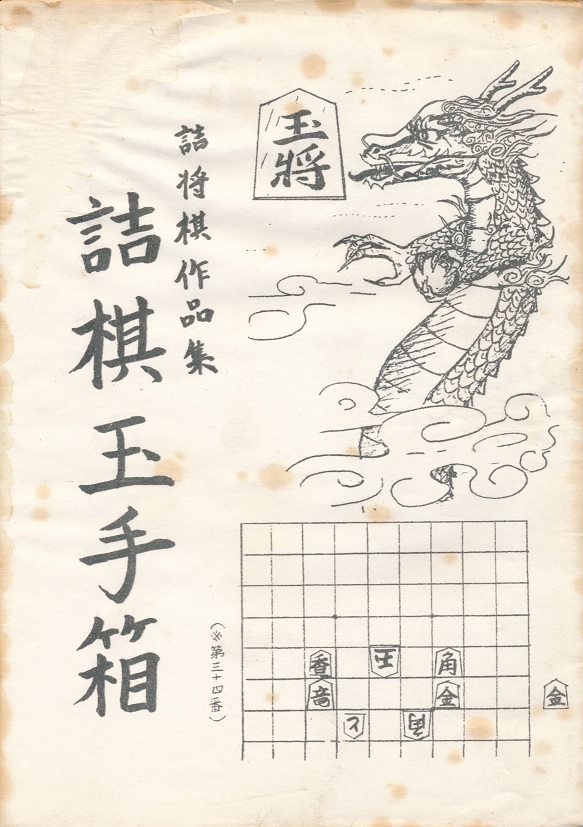 玉将
詰将棋作品集
詰棋玉手箱
(※第三十四番)
香
王
角
竜
金
と
角
金